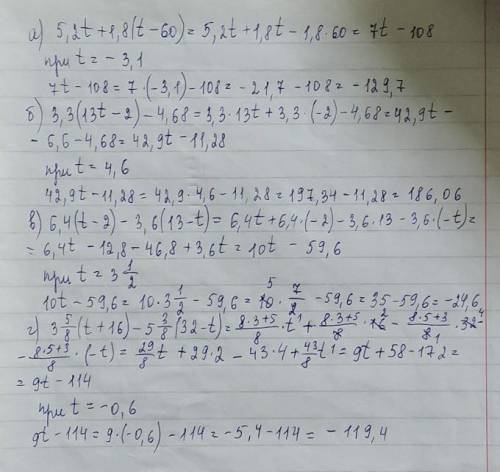 а) 5,2t+1,8(t-60)=5,2t+1,8t-1,8·60=7t-108
при t=-3,1
7t-108=7·(-3,1)-108=-21,7-108=-129,7
б) 3,3(13t-2)-4,68=3,3·13t+3,3·(-2)-4,68=42,9t-
-6,6-4,68=42,9t-11,28
при t=4,6
42,9t-11,28=42,9·4,6-11,28=197,34-11,28=186,06
в) 6,4(t-2)-3,6(13-t)=6,4t+6,4·(-2)-3,6·13-3,6·(-t)=
=6,4t-12,8-46,8+3,6t=10t-59,6
при t=3 1/2
10t-59,6=10·3 1/2-59,6=10·7/2-59,6=35-59,6=-24,6
г) 3 5/8(t+16)-5 3/8(32-t)=(8·3+5)/8·t+(8·3+5)/8·16-(8·5+3)/8·32-
-(8·5+3)/8·(-t)=29/8t+29·2-43·4+43/8t=9t+58-172=
=9t-114
при t=-0,6
9t-114=9·(-0,6)-114=-5,4-114=-119,4